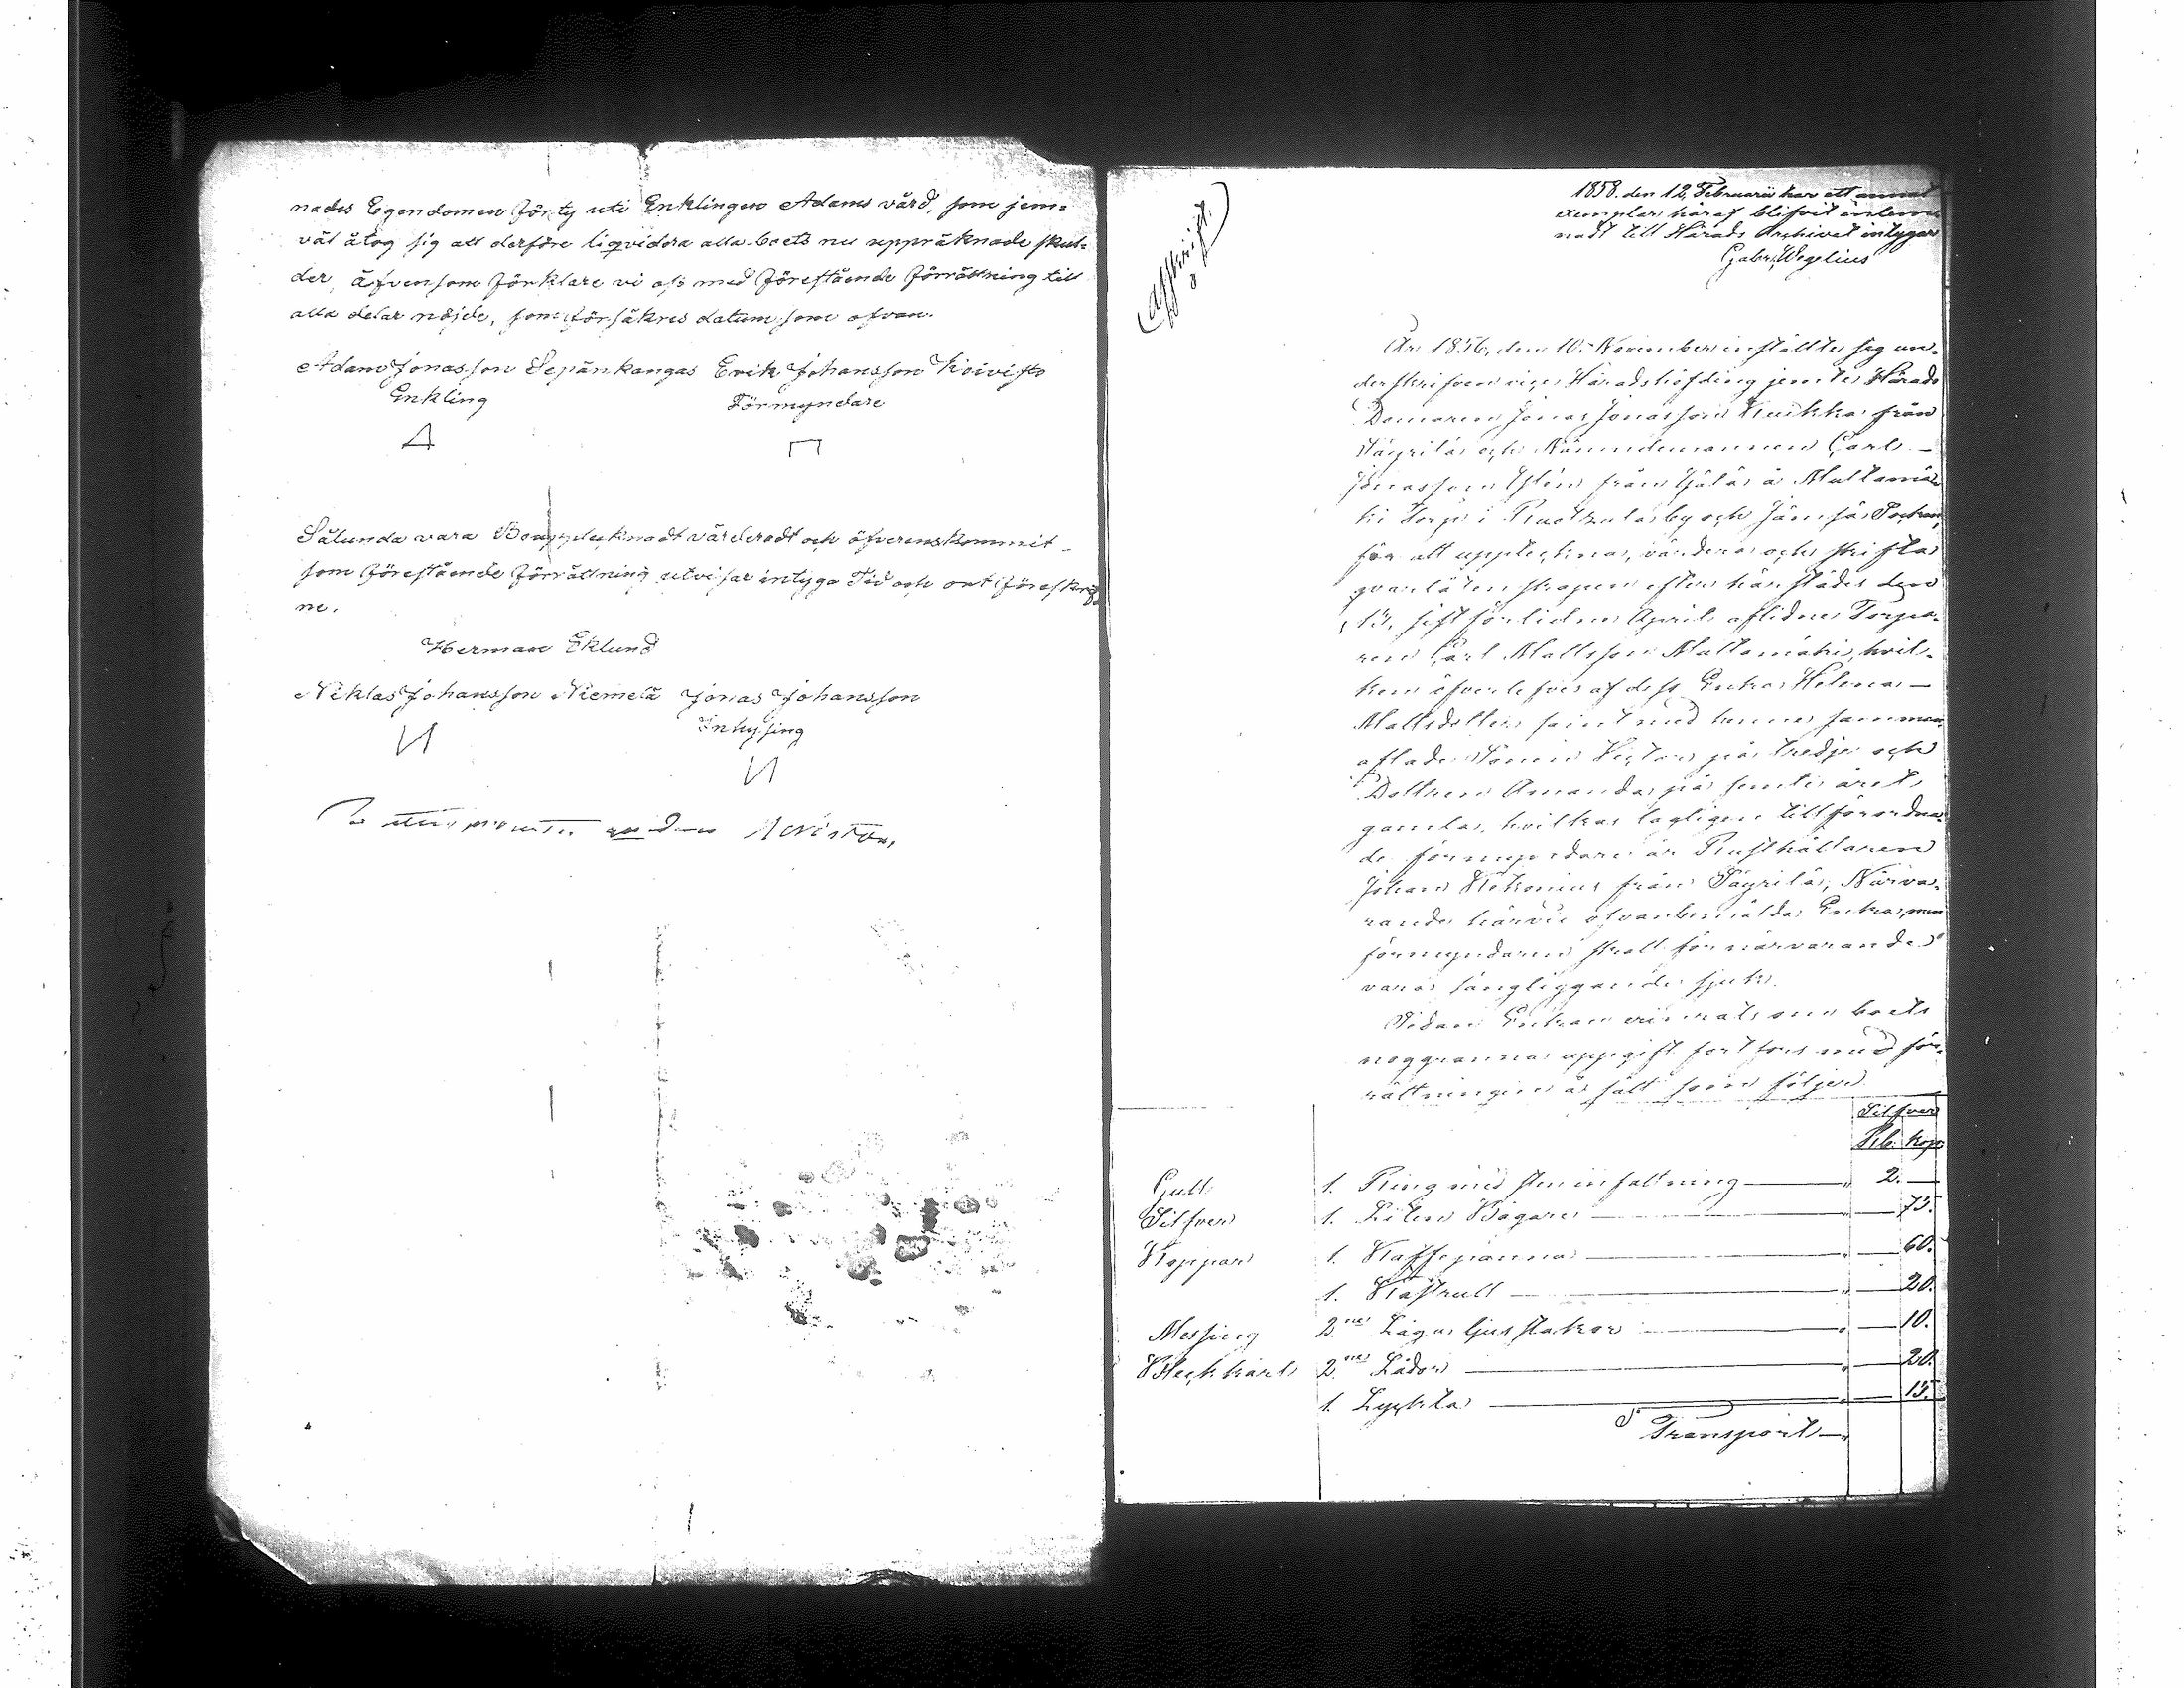 nades Egendomen förty uti Enklingen Adams vård, som jem-
väl åtog sig att derföre liqvidera alla boets nu uppräknade skul-
der, äfvensom förklare vi oss med förestående förrättning till
alla delar nöjde, som försäkres datum som ofvan.
Adam Jonasson Sepänkangas Erik Johansson Koivisto
Enkling Förmyndare
Sålunda vara Bouppteknadt värderadt och öfverenskommit
som föreståënde förrättning utvisar intyga Tid och ort föreskrif-
ne.
Herman Eklund
Niklas Johansson Niemelä Jonas Johansson
Inhysing
(Afskrift.)
1858. den 12 Februarii har ett annat
exemplar häraf blifvit inlem-
nadt till Härads Archivet intygar
Gabr. Wegelius
År 1856, den 10. November inställte sig un-
derskrifven vice Häradshöfding jemte Härads
Domaren Jonas Jonasson Kuikka från
Säyrilä och Nämndemannen Carl
Jonasson från å Mattamä-
ki Torp i by och Sämsä Socken,
för att uppteckna, värdera och skifta
qvarlåtenskapen efter härstädes den
13. sistförlidne April aflidne Torpa-
ren Carl Mattsson Mattamäki, hvil-
ken öfverlefves af dess Enka Helena
Mattsdotter samt med henne samman
aflade Sonen Victor på tredje och
Dottren Amanda på femte året
gamla, hvilkas lagligen tillförordna-
de förmyndare är Rusthållaren
Johan från Säyrilä, Närva-
rande härvid ofvanbemälda Enka, men
förmyndaren skall för närvarande
vara sängliggande sjuk.
Sedan Enkan erinrats om boets
noggranna uppgift fortfors med för-
rättningen å sätt som följer.
Silfver
Rb. kop.
Guld 1. Ring med steninfattning " 2. —
Silfver 1. Liten Bägare " — 75.
Koppar 1. Kaffepanna " — 60.
1. Kastrull " — 20.
Messing 2ne Låga ljusstakar " — 10.
Bleckkärl 2ne Lådor " — 20.
1. Lyckta " — 15.
Transport "